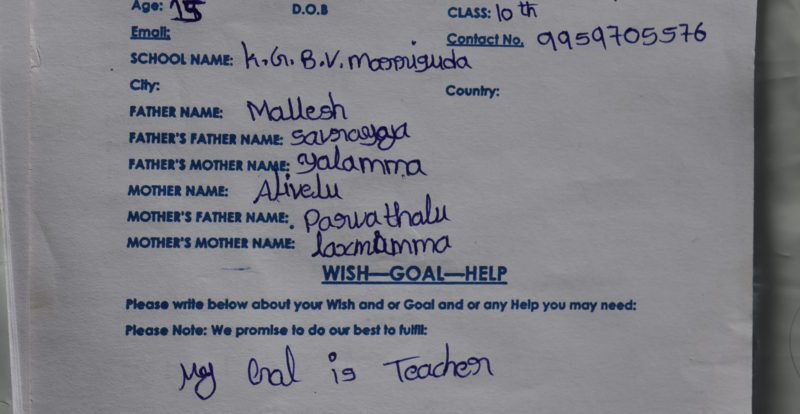 Age: 15 D.O.B CLASS: 10 th
Email: Contact No. 9959705576
SCHOOL NAME: K.G.B.V. Moorriguda
City: Country:
FATHER NAME: Mallesh
FATHER'S FATHER NAME: Savrayya
FATHER'S MOTHER NAME: Yalamma
MOTHER NAME: Alivelu
MOTHER'S FATHER NAME: Parvathalu
MOTHER'S MOTHER NAME: laxmamma
WISH—GOAL—HELP
Please write below about your Wish and or Goal and or any Help you may need:
Please Note: We promise to do our best to fulfil:
My Goal is Teacher